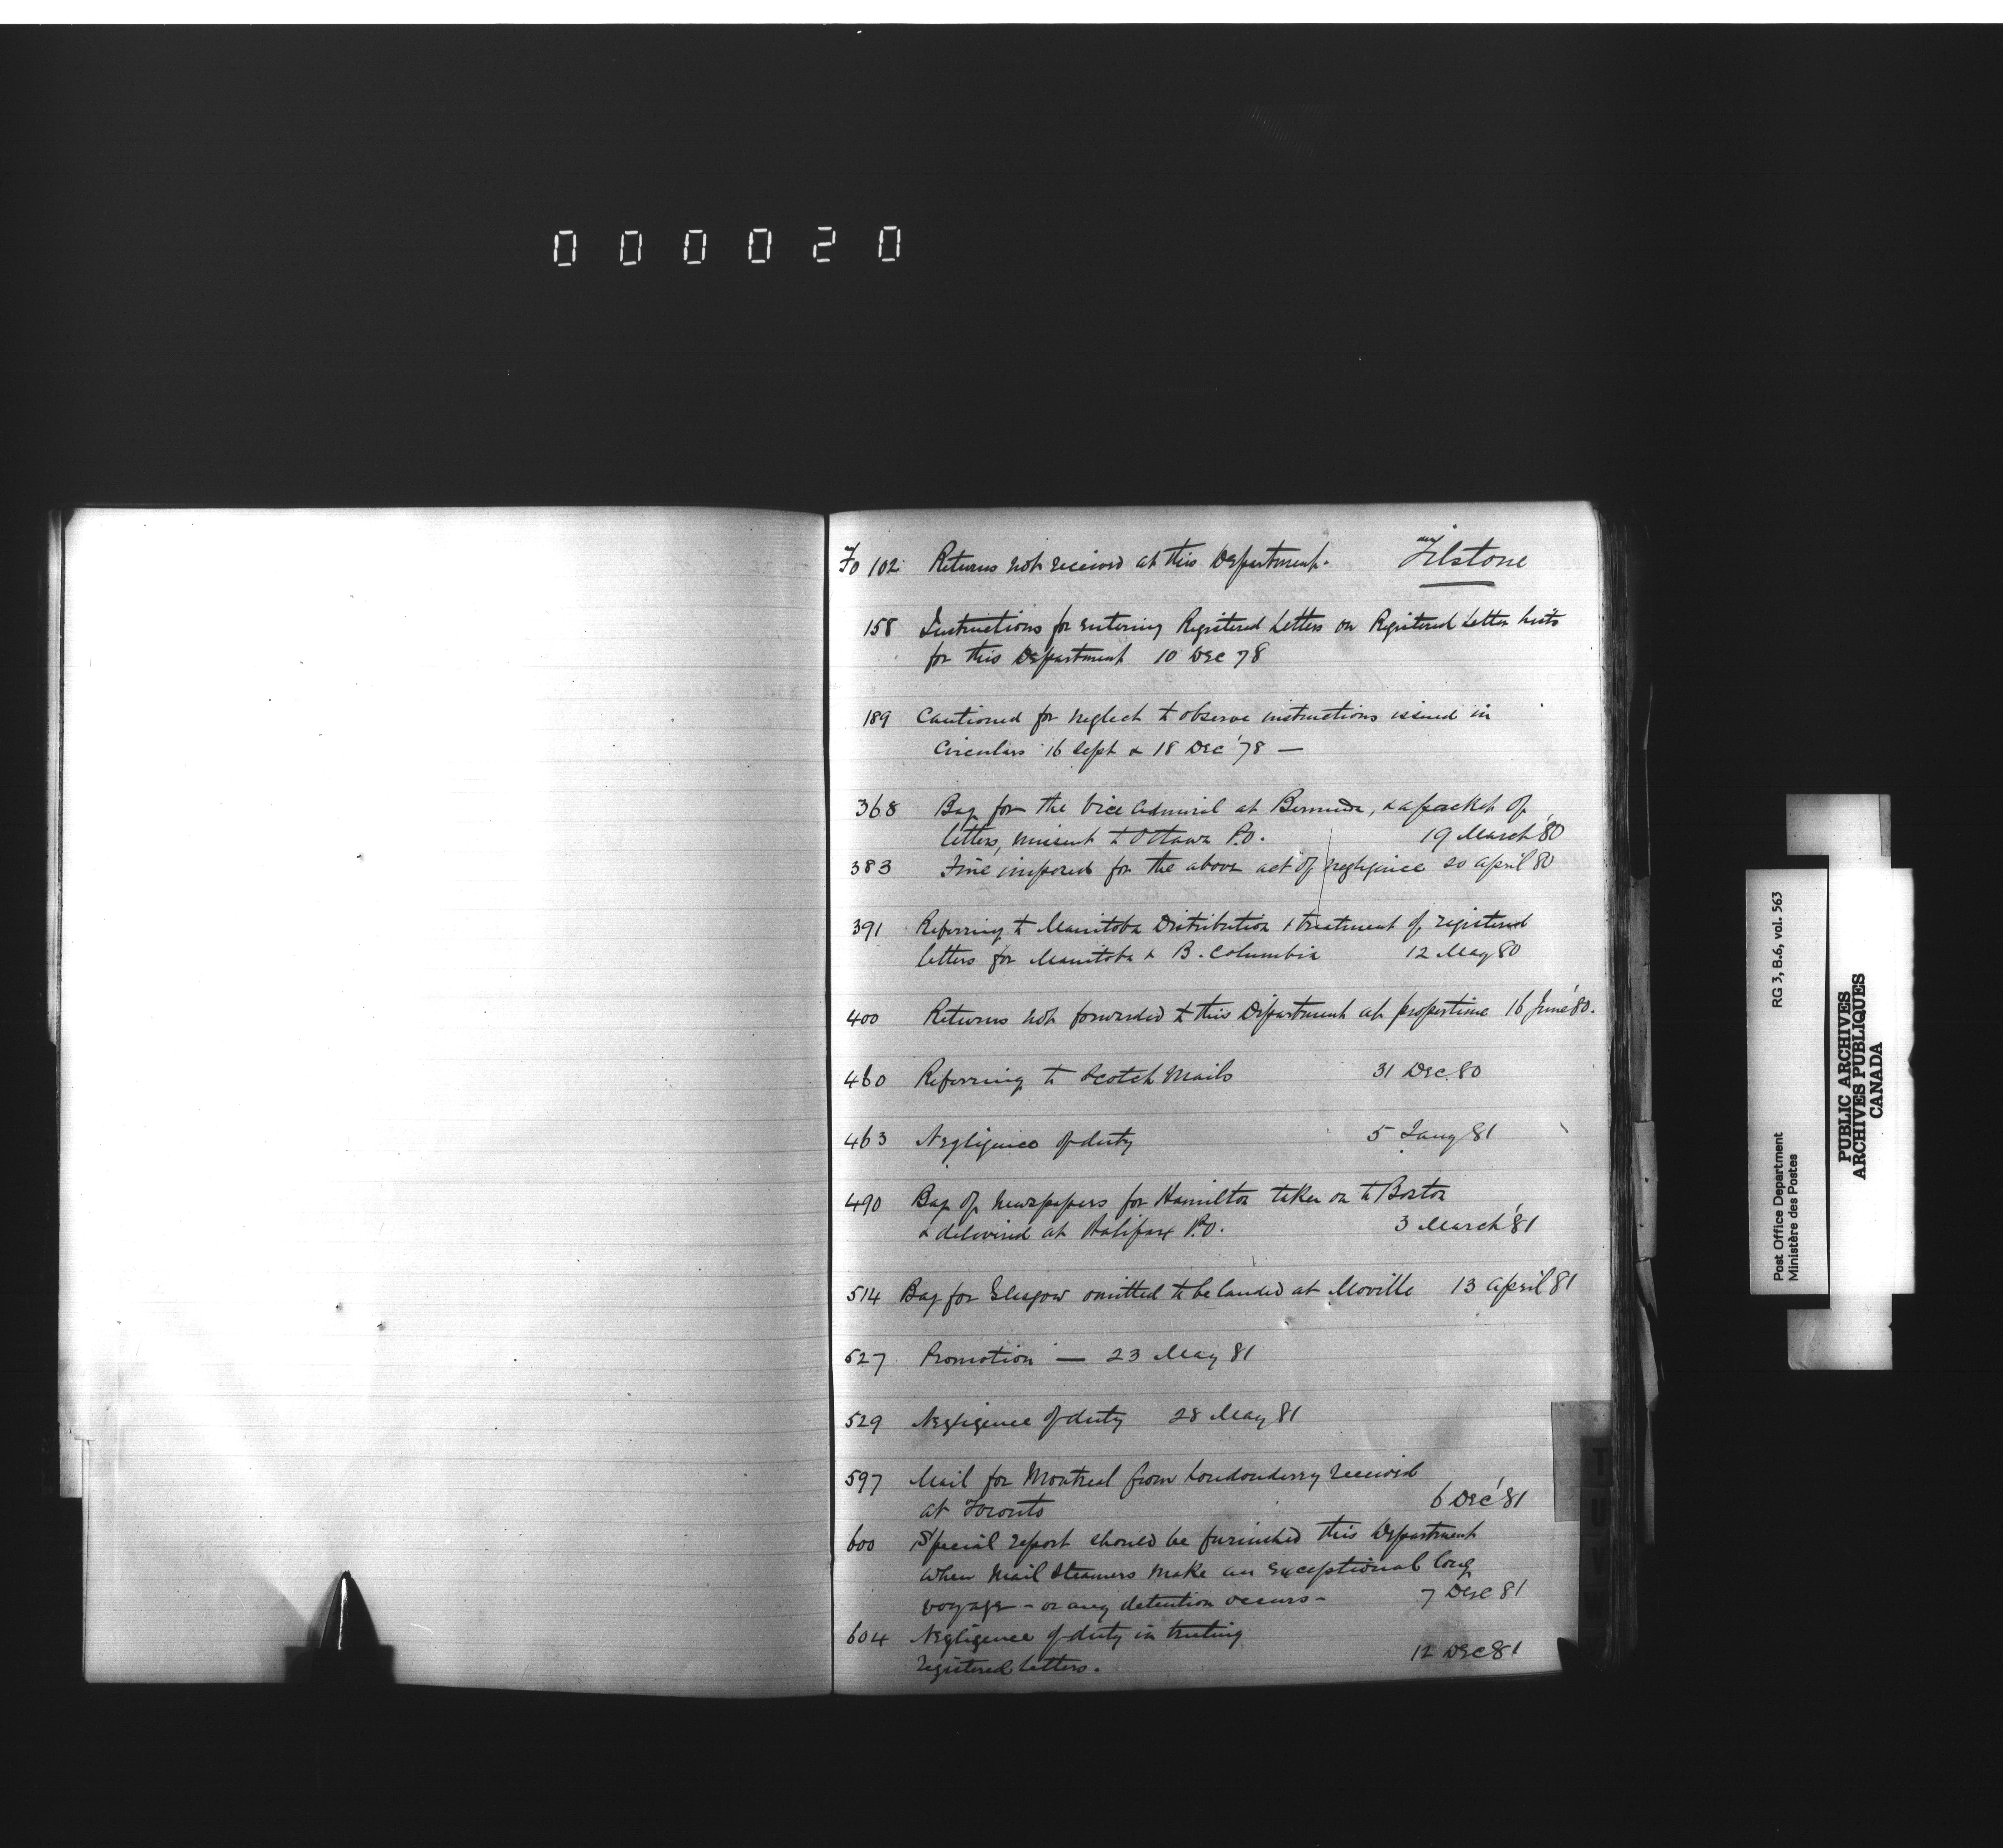 000020
Fo 102 Returns not received at this Department. Filstone
158 Instructions for entering Registered Letters on Registered Letter lists
for this Department 10 Dec 78
189 Cautioned for neglect to observe instructions issued in
Circulars 16 Sept & 18 Dec '78 —
368 Bag for the Vice Admiral at Bermuda, & a packet of
letters, missent to Ottawa P.O. 19 March '80
383 Fine imposed for the above act of negligence 20 April 80
391 Referring to Manitoba Distribution & treatment of registered
letters for Manitoba & B. Columbia 12 May 80
400 Returns not forwarded to this Department at proper time 16 June '80.
460 Referring to Scotch Mails 31 Dec. 80
463 Negligence of duty 5 Jany 81
490 Bag of newspapers for Hamilton taken on to Boston
& delivered at Halifax P.O. 3 March '81
514 Bag for Glasgow omitted to be landed at Moville 13 April 81
527 Promotion — 23 May 81
529 Negligence of duty 28 May 81
597 Mail for Montreal from Londonderry received
at Toronto 6 Dec '81
600 Special report should be furnished this Department
when Mail Steamers make an exceptional long
voyage - or any detention occurs - 7 Dec 81
604 Negligence of duty in treating
registered letters. 12 Dec 81
T
U
V
Post Office Department RG 3, B.6, vol. 563
Ministère des Postes
PUBLIC ARCHIVES
ARCHIVES PUBLIQUES
CANADA